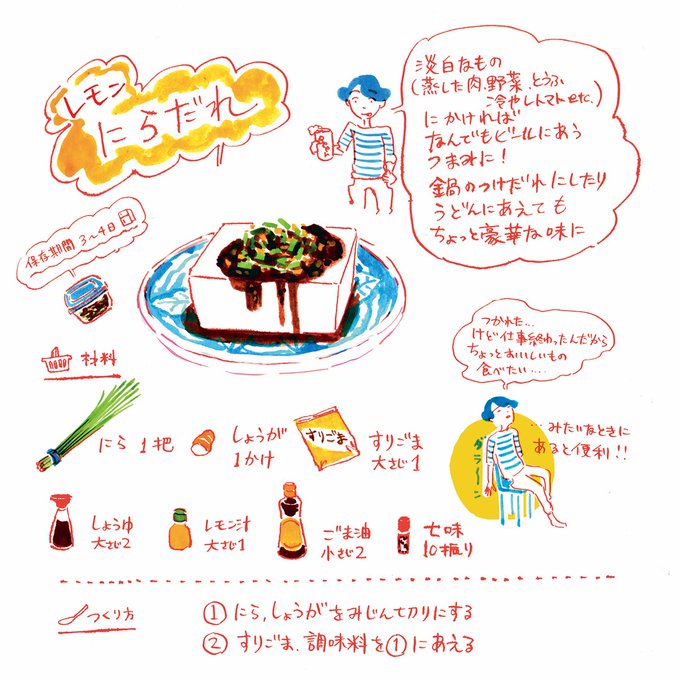 レモン
にらだれ
淡白なもの
(蒸した肉、野菜、とうふ
冷やしトマト etc.)
にかければ
なんでもビールにあう
つまみに!
鍋のつけだれにしたり
うどんにあえても
ちょっと豪華な味に
保存期間 3〜4日
材料
にら 1把
しょうが
1かけ
すりごま
すりごま
大さじ1
しょうゆ
大さじ2
レモン汁
大さじ1
ごま油
小さじ2
七味
10振り
つかれた...
けど仕事終わったんだから
ちょっとおいしいもの
食べたい....
ダラ〜ン
...みたいなときに
あると便利!!
つくり方
① にら、しょうがをみじん切りにする
② すりごま、調味料を①にあえる